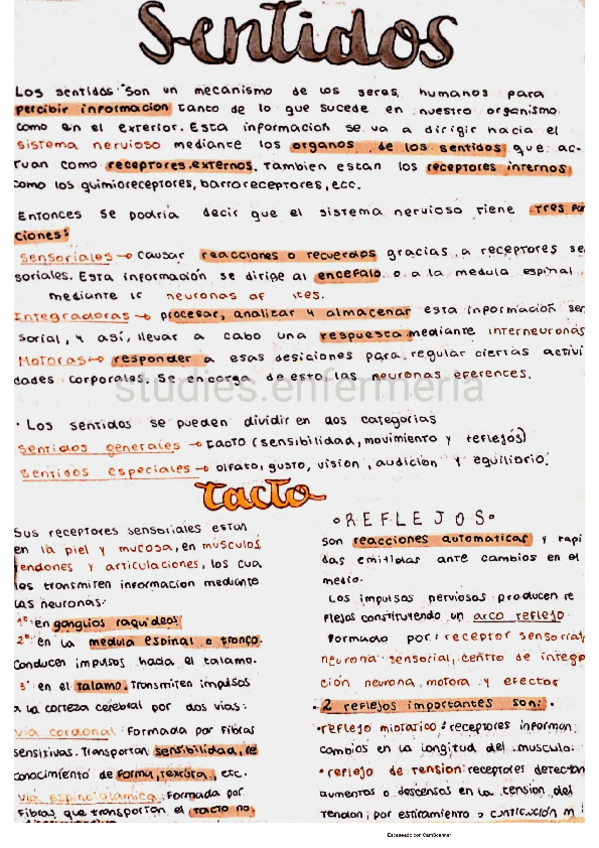 Sentidos
Los sentidos "Son un mecanismo de los seres humanos para
percibir informacion tanto de lo que sucede en nuestro organismo
como en el exterior. Esta informacion se va a dirigir hacia el
sistema nervioso mediante los organos de los sentidos que ac-
tuan como receptores externos. Tambien estan los receptores internos
como los quimioreceptores, barroreceptores, etc.
Entonces se podria decir que el sistema nervioso tiene tres fun
ciones:
Sensoriales → Causar reacciones o recuerdos gracias a receptores se
soriales. Esta información se dirige al encefalo o a la medula espinal
mediante neuronas
Integradoras → procesar, analizar y almacenar esta información sen
sorial, y así, llevar a cabo una respuesta mediante interneuronas
Motoras → responder a esas desiciones para regular ciertas activi
dades corporales. Se encarga de esto las neuronas eferences.
studies.enfermeria
· Los sentidos se pueden dividir en dos categorias
Sentidos generales → tacto (sensibilidad, movimiento y reflejos)
Sentidos especiales → olfato, gusto, vision, audicion y equilibrio.
tacto
Sus receptores sensoriales estan
en la piel y mucosa, en musculos
tendones y articulaciones, los cua
les transmiten informacion mediante
las neuronas:
1° en ganglios raquideos
2° en la medula espinal o tronco.
Conducen impulsos hacia el talamo.
3° en el talamo. Transmiten impulsos
a la corteza cerebral por dos vias:
via cordonal: Formada por fibras
sensitivas. Transportan sensibilidad, re
conocimiento de forma, textura, etc.
via espinotalamica: Formada por
fibras que transportan el tacto no
°REFLEJOS°
son reacciones automaticas y rapi
das emitidas ante cambios en el
medio.
Los impulsos nerviosos producen re
flejos constituyendo un arco reflejo
Formado por: receptor sensorial,
neurona sensorial, centro de integra
ción neurona motora y efector
· 2 reflejos importantes son: ·
•reflejo miotatico: receptores informan
cambios en la longitud del musculo.
•reflejo de tension: receptores detectan
aumentos o descensos en la tension del
tendon, por estiramiento o contraccion m
Escaneado con CamScanner